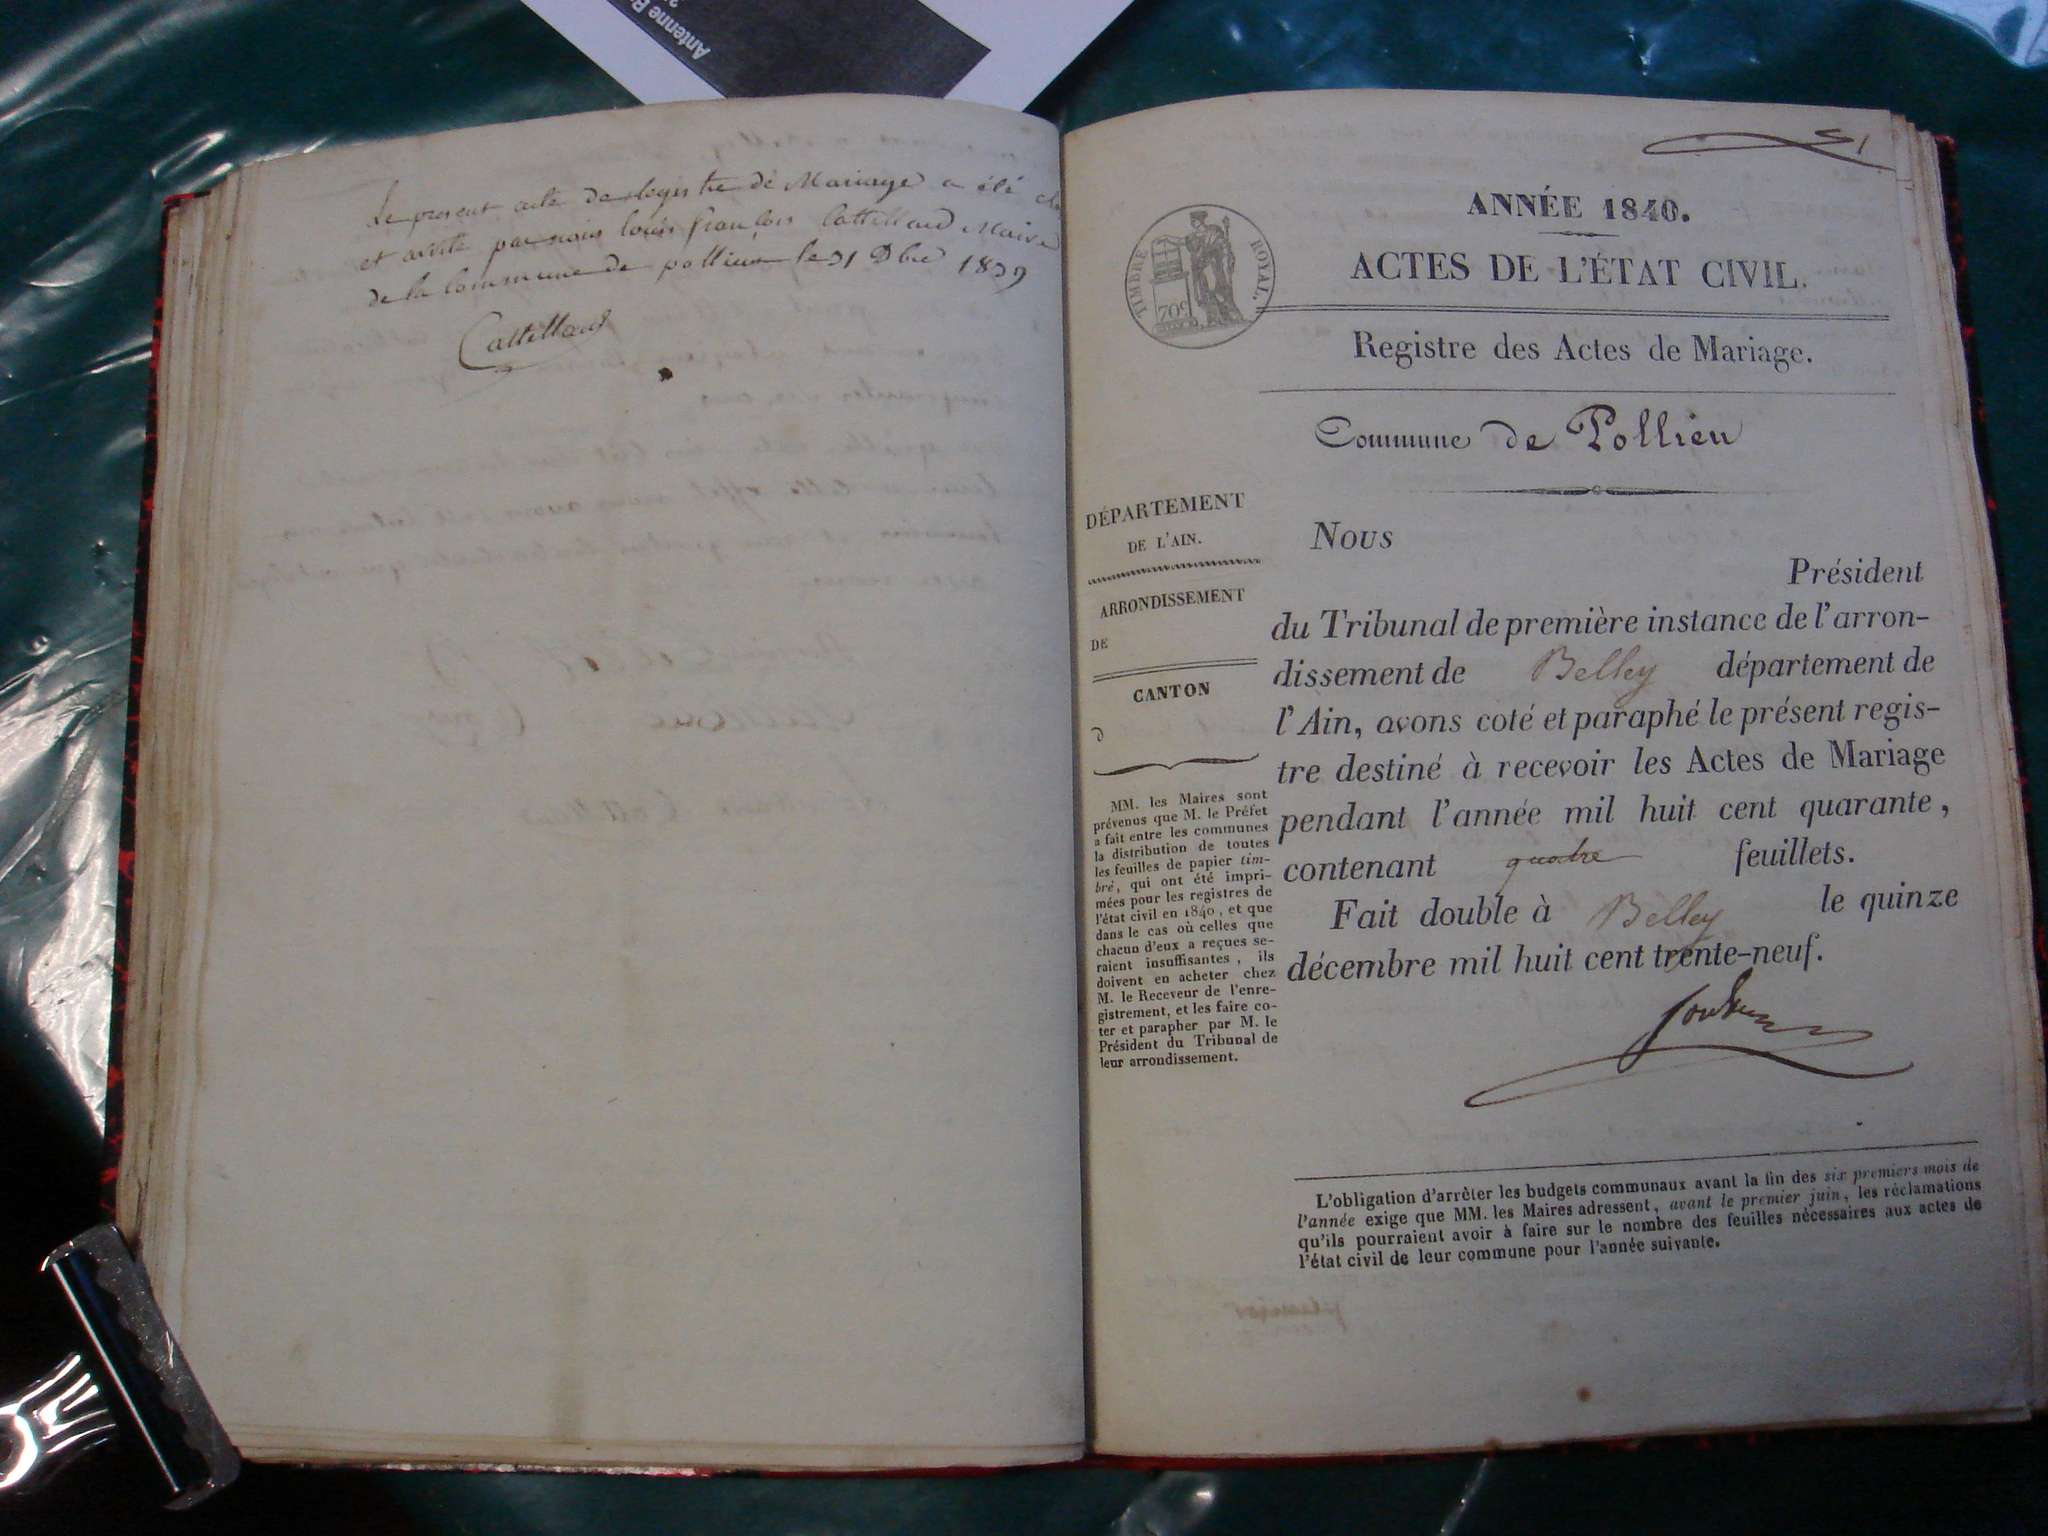 Antenne B
Le present acte de Registre de Mariage a été
et arrêté par nous louis françois Cattilland Maire
de la Commune de pollieu le 31 Dbre 1839
Cattilland
1
ANNÉE 1840.
ACTES DE L'ÉTAT CIVIL.
TIMBRE ROYAL.
70c
Registre des Actes de Mariage.
Commune de Pollieu
DÉPARTEMENT
DE L'AIN.
ARRONDISSEMENT
DE
CANTON
D
MM. les Maires sont
prévenus que M. le Préfet
a fait entre les communes
la distribution de toutes
les feuilles de papier tim-
bré, qui ont été impri-
mées pour les registres de
l'état civil en 1840, et que
dans le cas où celles que
chacun d'eux a reçues se-
raient insuffisantes, ils
doivent en acheter chez
M. le Receveur de l'enre-
gistrement, et les faire co-
ter et parapher par M. le
Président du Tribunal de
leur arrondissement.
Nous
Président
du Tribunal de première instance de l'arron-
dissement de Belley département de
l'Ain, avons coté et paraphé le présent regis-
tre destiné à recevoir les Actes de Mariage
pendant l'année mil huit cent quarante,
contenant quatre feuillets.
Fait double à Belley le quinze
décembre mil huit cent trente-neuf.
L'obligation d'arrêter les budgets communaux avant la fin des six premiers mois de
l'année exige que MM. les Maires adressent, avant le premier juin, les réclamations
qu'ils pourraient avoir à faire sur le nombre des feuilles nécessaires aux actes de
l'état civil de leur commune pour l'année suivante.